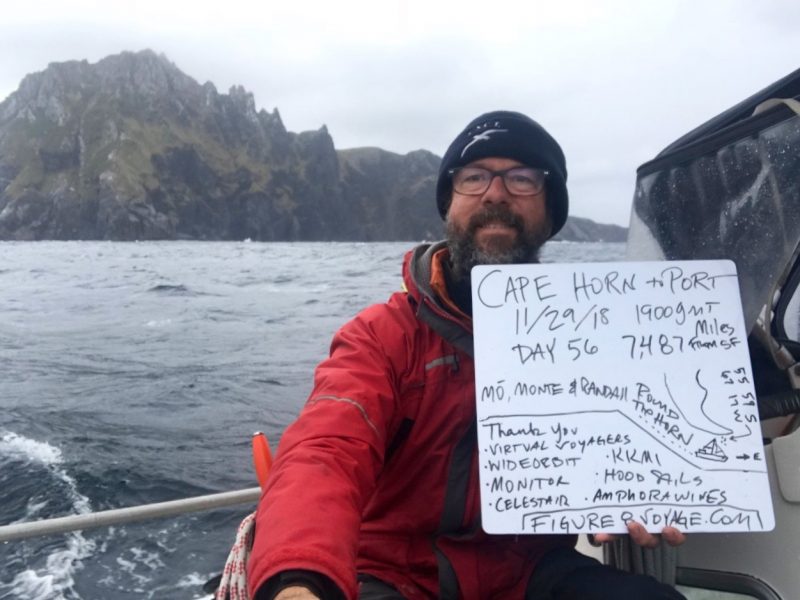 CAPE HORN to PORT
11/29/18 1900gMT
DAY 56 7,487 Miles from SF
MŌ, MONTE & RANDALL ROUND THE HORN
Thank you
• VIRTUAL VOYAGERS
• WIDEORBIT • KKMI
• MONITOR • HOOD SAILS
• CELESTAIR • AMPHORA WINES
FIGURE8VOYAGE.COM
E